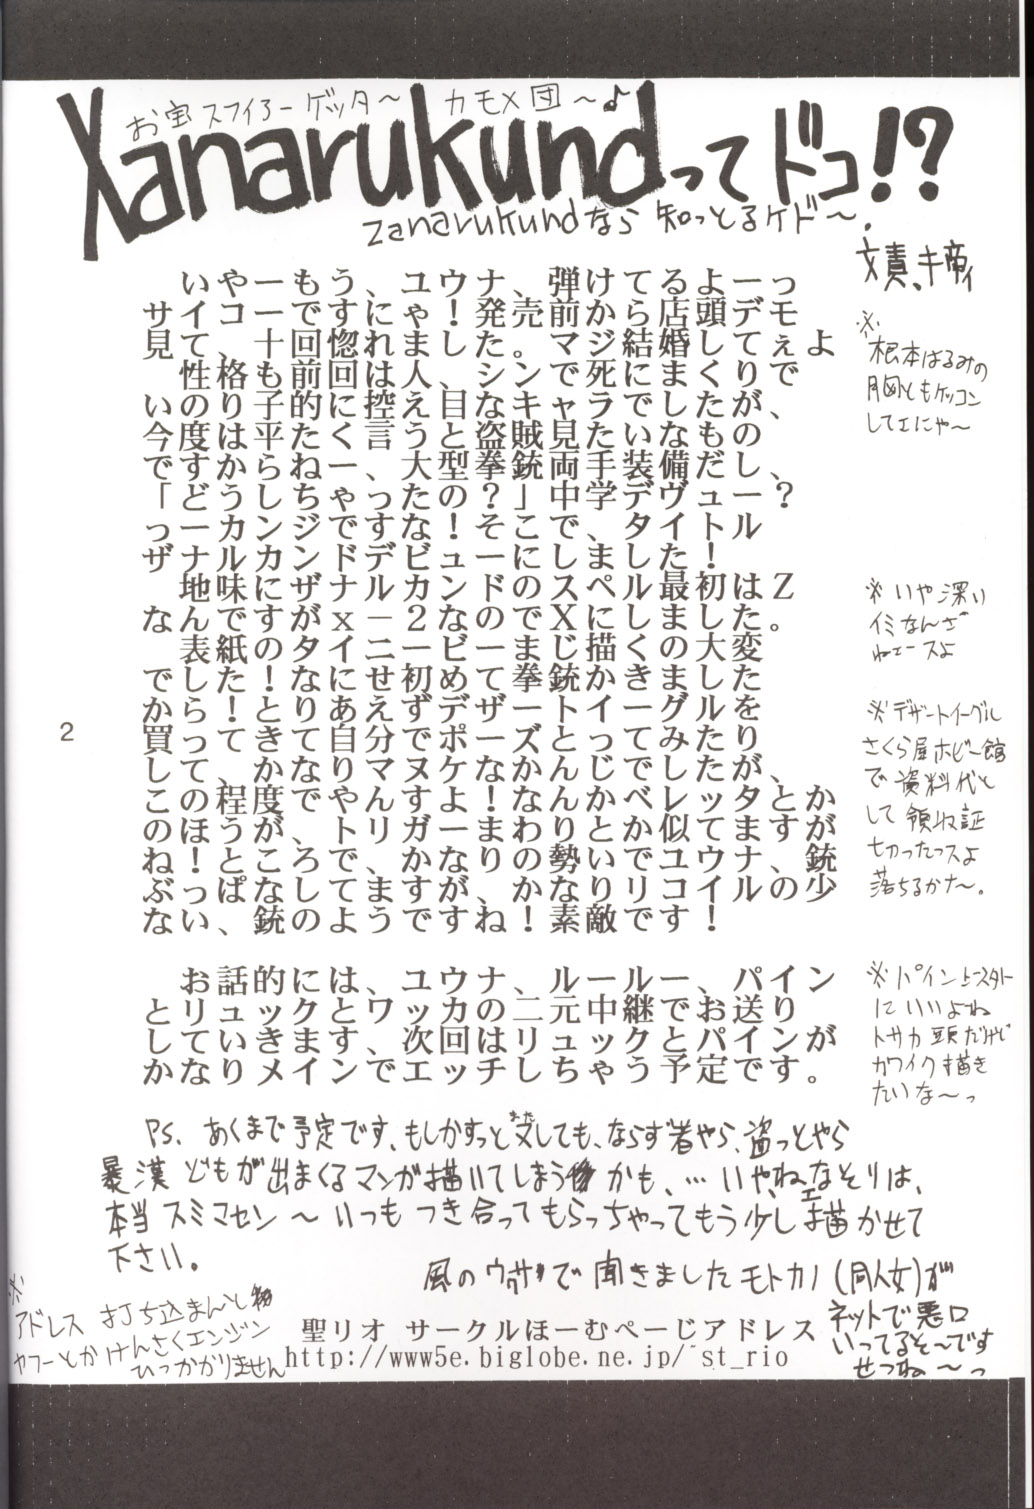 お宝スフィアーゲッター カモメ団～♪
Xanarukundってドコ!?
zanarukundなら知っとるケド～。
文責、キ帝ィ
いやーもう、ユウナ、弾けてるよーっ
サイコーですにゃ！発売前から店頭デモ
見て、十回惚れました。マジ結婚してぇよ
性格も前回は人、シンで死にまくりで、
いのり子的に控え目なキャラでしたが、
今度は平たく言うと盗賊見たいなもの、
ですからねー、大型拳銃両手装備だし、
「どうしちゃったの？」中学デヴュー？
っーカンジですな！そこで、タイトル
ザナルカンドデビューにしました！
地味にザナルカンドのスペル最初はZ
なんですがx－2なのでXにしました。
表紙のタイニービーまじ描くの大変
でした！なにせ初めて拳銃かきました
から！とりあえずデザートイーグルを
買ってきて自分でポーズとってみたり
して、かなりマヌケなかんじでしたが、
この程度でやんすよ！なんかベレッタとか
のほうが、トリガーまわりとか似てますが
ね！ところで、かなりの勢いでユウナ、銃
ぶっぱなしてますが、かなりリコイルの少
ない銃のようですね！素敵です！
※根本はるみの
胸ともケッコン
してェにゃ～
※いや深い
イミなんざ
ねェースよ
※デザートイーグル
さくら屋ホビー館
で資料代と
して領収証
切ったっスよ
落ちるかナ～。
お話的には、ユウナ、ルールー、パイン
とリュックと、ワッカの二元中継でお送り
していきます、で次回はリュックとパインが
かなりメインでエッチしちゃう予定です。
※パイン上スタト
にいいよね
トサカ頭だけど
カワイク描き
たいな～っ
2
PS. あくまで予定です、もしかすっと又しても、ならず者やら、盗っとやら
暴漢どもが出まくるマンガ描いてしまうかも、…いやねェなそりは、
本当スミマセン～いつもつき合ってもらっちゃってもう少し描かせて
下さい。
風のウワサで聞きましたモトカノ(同人女)が
ネットで悪口
いってるそ～です
せつね～っ
※アドレス打ち込まんと
ヤフーとかけんさくエンジン
ひっかかりません
聖リオ サークルほーむぺーじアドレス
http://www5e.biglobe.ne.jp/~st_rio